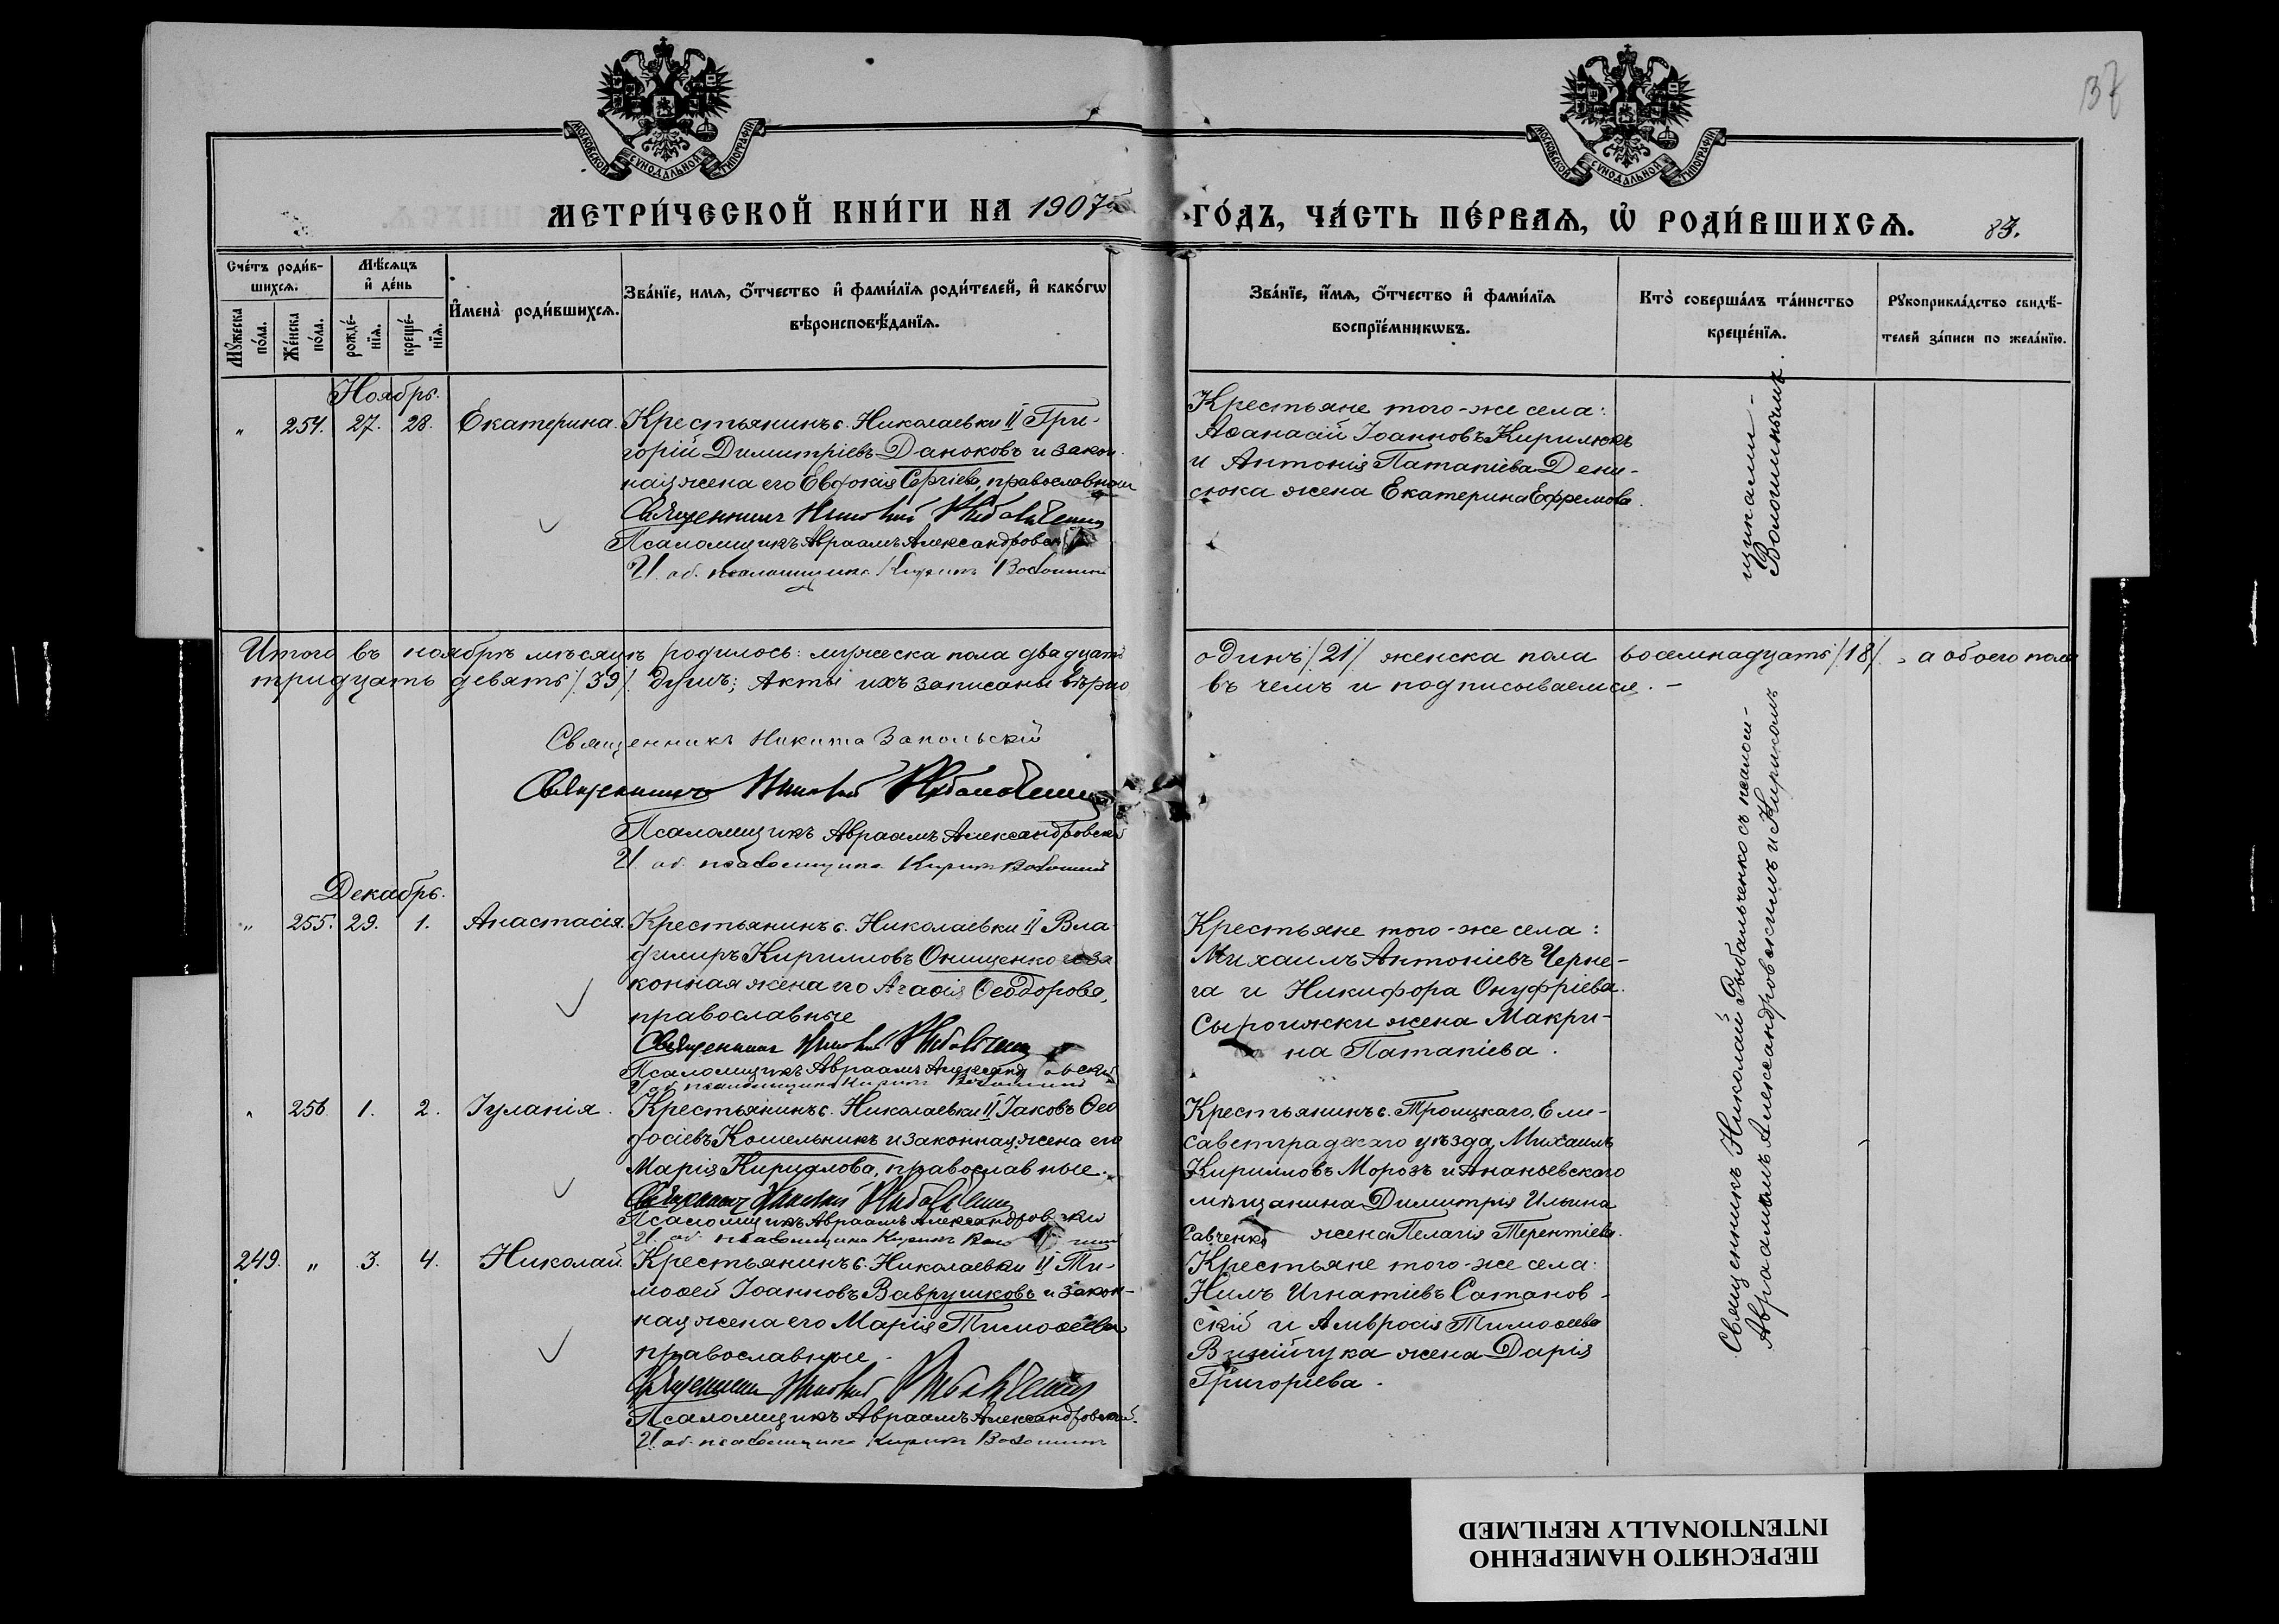 137
МОСКОВСКОЙ СѴНОДАЛЬНОЙ ТИПОГРАФІИ
МОСКОВСКОЙ СѴНОДАЛЬНОЙ ТИПОГРАФІИ
МЕТРИ́ЧЕСКОЙ КНИ́ГИ НА 1907й ГО́ДЪ, ЧА́СТЬ ПЕ́РВАѦ, Ѡ҆ РОДИ́ВШИХСѦ. 83.
Сче́тъ роди́в-
шихсѧ.
Мѣ́сѧцъ
и҆ де́нь
Мꙋ́жеска по́ла.
Же́нска по́ла.
рожде́-нїѧ.
креще́-нїѧ.
И҆мена̀ роди́вшихсѧ.
Зва́нїе, имѧ, ѻ҆́тчество и҆ фамѝлїѧ роди́телей, и҆ како́гѡ
вѣроисповѣ́данїѧ.
Зва́нїе, и҆́мѧ, ѻ҆́тчество и҆ фами́лїѧ
воспрїе́мникѡвъ.
Кто̀ соверша́лъ та́инство
креще́нїѧ.
Рꙋкоприкла́дство свидѣ́-
телей за́писи по жела́нїю.
Ноябрь.
" 254. 27. 28. Екатерина. Крестьянинъ с. Николаевки II Гри-
горій Димитріевъ Данюковъ и закон
ная жена его Евдокія Сергіева, православные
Священникъ Николай Рыбальченко
Псаломщикъ Авраамъ Александровскій
И. об. псаломщика Кирикъ Волошинъ
Крестьяне того-же села:
Аѳанасій Іоанновъ Кирилюкъ
и Антонія Патапіева Дени-
сюка жена Екатерина Ефремова.
щиками-
Волошинымъ.
Итого въ ноябрѣ мѣсяцѣ родилось: мужеска пола двадцать одинъ /21/ женска пола восемнадцать /18/, а обоего пола
тридцать девять /39/ душъ; Акты ихъ записаны вѣрно въ чемъ и подписываемся. -
Священникъ Никита Запольскій
Священникъ Николай Рыбальченко
Псаломщикъ Авраамъ Александровскій
И. об. псаломщика Кирикъ Волошинъ
Декабрь.
" 255. 29. 1. Анастасія. Крестьянинъ с. Николаевки II Вла-
димиръ Кирилловъ Онищенко и за
конная жена его Агаѳія Ѳеодорова,
православные
Священникъ Николай Рыбальченко
Псаломщикъ Авраамъ Александровскій
И. об. псаломщика Кирикъ Волошинъ
Крестьяне того-же села:
Михаилъ Антоніевъ Черне-
га и Никифора Онуфріева
Сырошки жена Макри-
на Патапіева.
" 256 1. 2. Іуланія. Крестьянинъ с. Николаевки II Іаковъ Ѳео
досіевъ Кошельникъ и законная жена его
Марія Кириллова, православные.
Священникъ Николай Рыбальченко
Псаломщикъ Авраамъ Александровскій
И. об. псаломщика Кирикъ Волошинъ
Крестьянинъ с. Троицкаго, Ели-
саветградскаго уѣзда, Михаилъ
Кирилловъ Морозъ и Ананьевскаго
мѣщанина Димитрія Ильина
Савченко жена Пелагія Терентіева.
249. " 3. 4. Николай. Крестьянинъ с. Николаевки II Ти-
моѳей Іоанновъ Ваврушковъ и закон-
ная жена его Марія Тимоѳеева
православные.
Священникъ Николай Рыбальченко
Псаломщикъ Авраамъ Александровскій.
И. об. псаломщика Кирикъ Волошинъ
Крестьяне того-же села:
Нилъ Игнатіевъ Сатанов-
скій и Амвросія Тимоѳеева
жена Дарія
Григоріева.
Священникъ Николай Рыбальченко съ псалом-
Авраамомъ Александровскимъ и Кирикомъ
ПЕРЕСНЯТО НАМЕРЕННО
INTENTIONALLY REFILMED